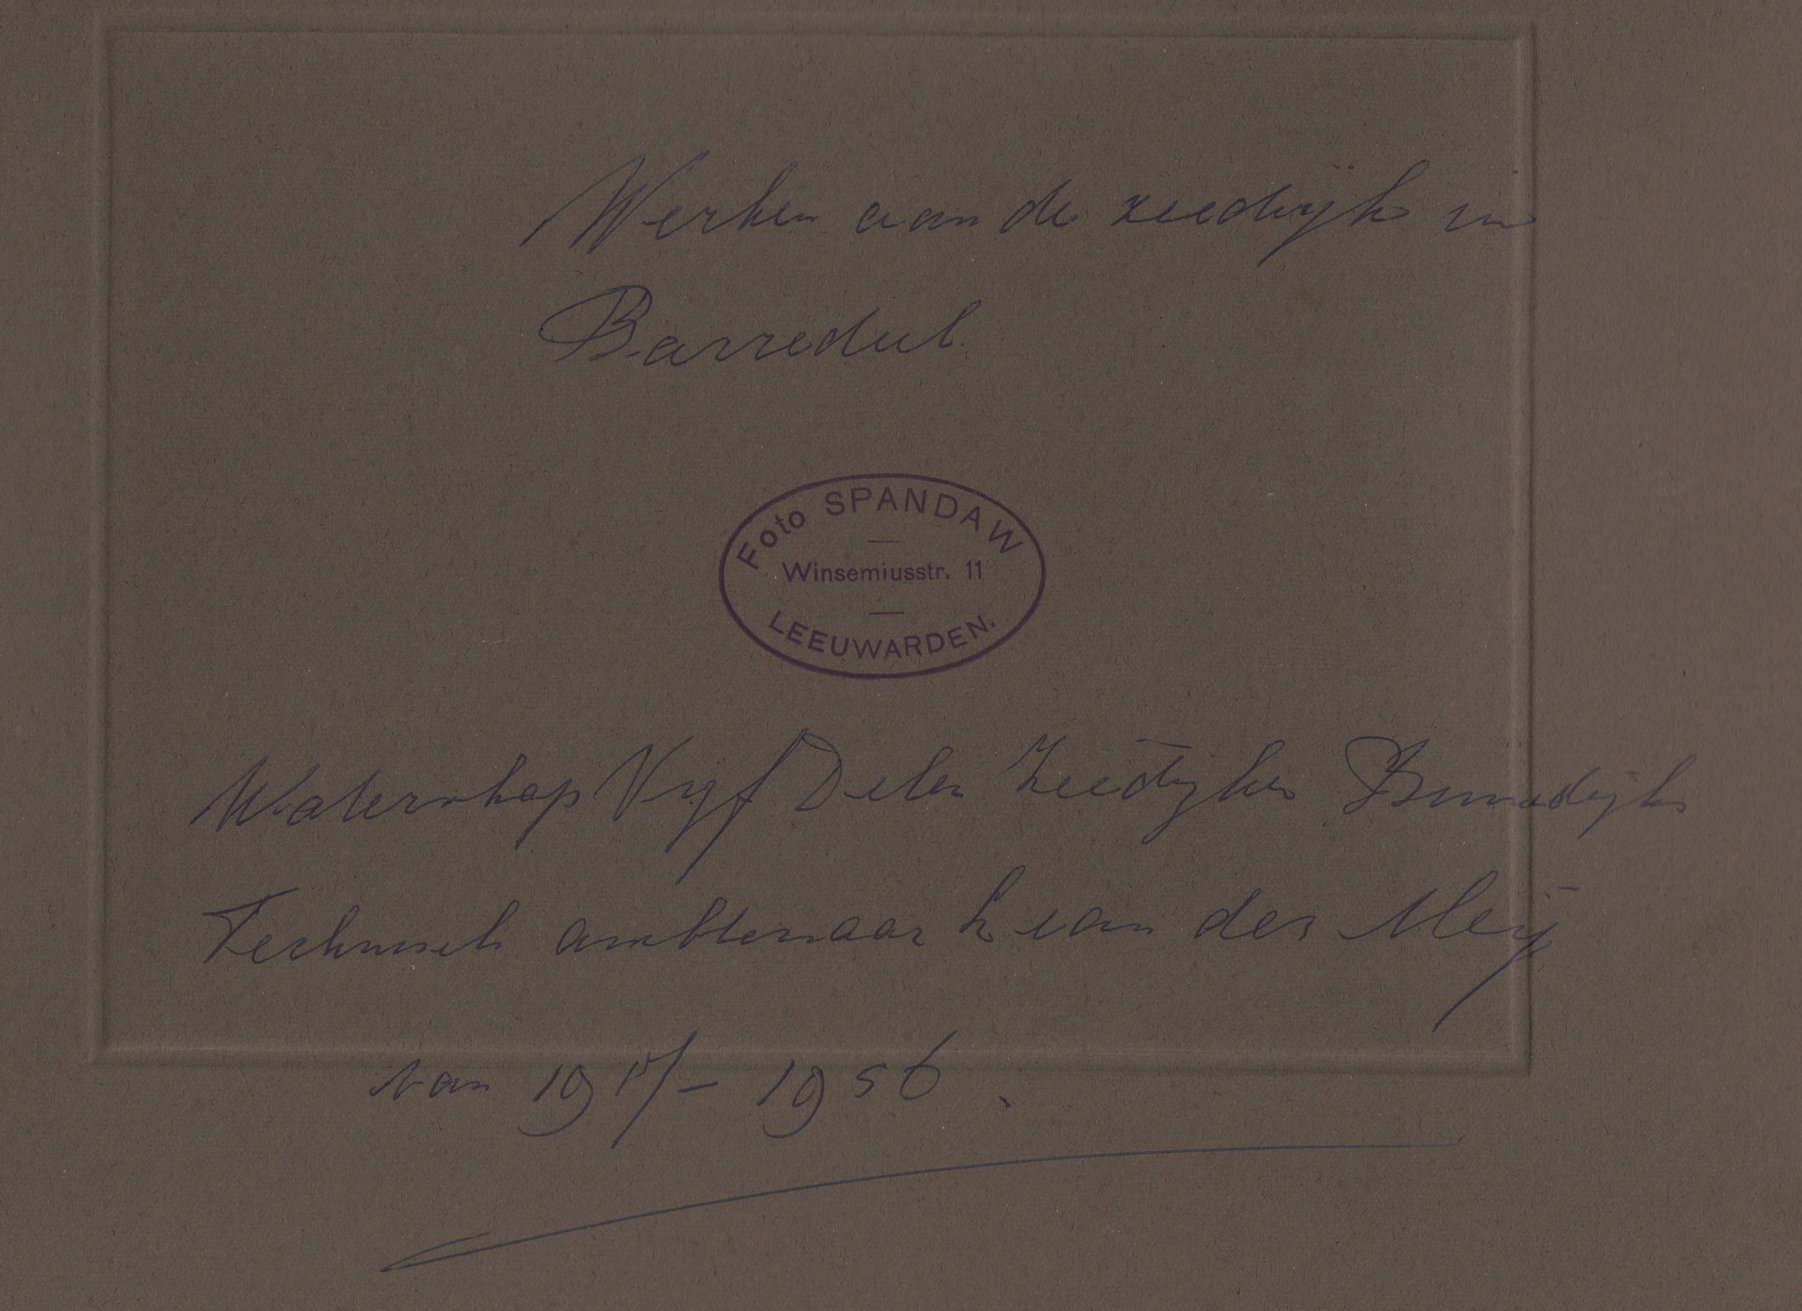 Werken aan de zeedijk in
Barradeel.
Foto SPANDAW
Winsemiusstr. 11
LEEUWARDEN.
Waterschap Vijf Delen Zeedijken Binnendijks
Technisch ambtenaar L van der Meij
van 19 – 1956.